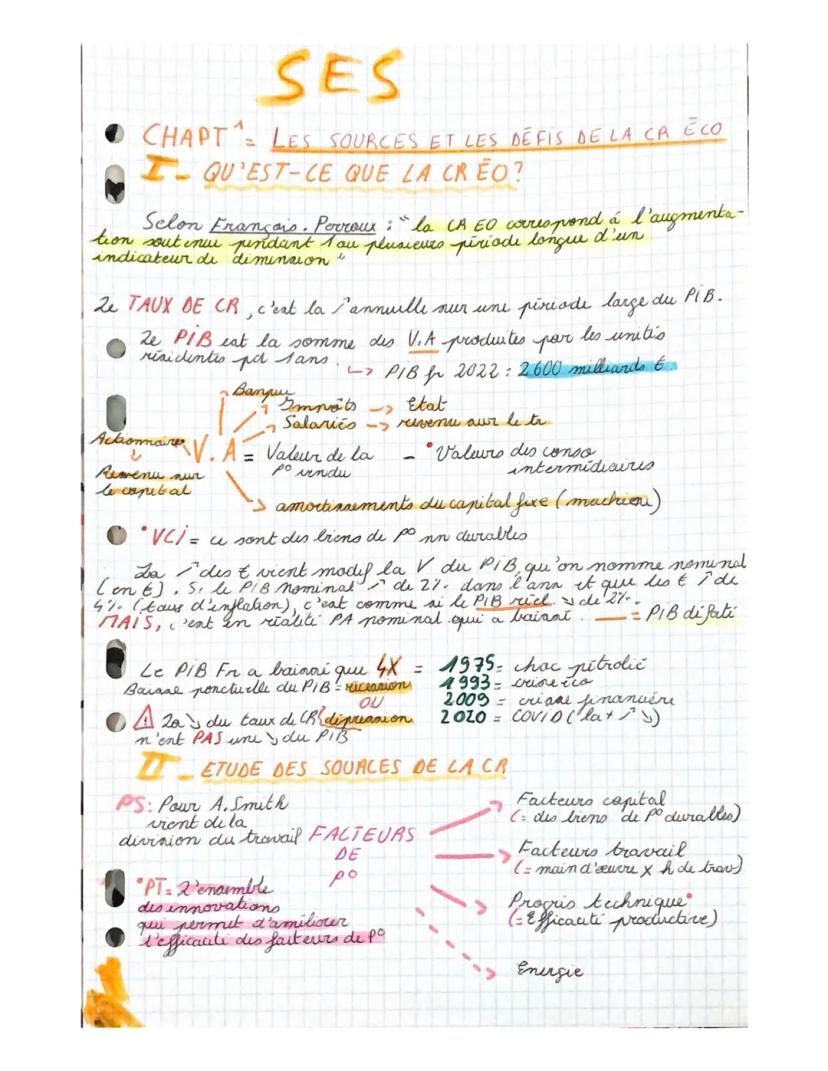 SES
CHAPT 1 = LES SOURCES ET LES DÉFIS DE LA CR ÉCO
I - QU'EST-CE QUE LA CR ÉO?
Selon François. Perroux : "la CR EO correspond á l'augmenta-
tion soutenue pendant 1 au plusieurs période longue d'un
indicateur de dimension"
Le TAUX DE CR, c'est la ↗ annuelle sur une période large du PIB.
Le PIB est la somme des V.A produites par les unités
résidentes pd 1 ans.
↳ PIB fr 2022 : 2 600 milliards €
Banque
Impôts → Etat
Salariés → revenu sur le tr
Actionnaires
Revenu sur
le capital
V.A = Valeur de la
P° vendu
- •Valeurs des conso
intermédiaires
amortissements du capital fixe (machine)
•VCi = ce sont des biens de P° nn durables
La ↗ des € vient modif la V du PIB, qu'on nomme nominal
(en €). Si le PIB nominal ↗ de 2% dans l'ann et que les € ↗ de
4% (taux d'inflation), c'est comme si le PIB réel ↘ de 2%.
MAIS, c'est en réalité PA nominal qui a baissé. __ = PIB déflaté
Le PIB Fr a baissé que 4X =
Baisse ponctuelle du PIB = récession
OU
dépression
⚠ La ↘ du taux de CR
n'ent PAS une ↘ du PIB
1975 = choc pétrolié
1993 = crise éco
2009 = crise financière
2020 = COVID (la + ↗ ↘)
II - ETUDE DES SOURCES DE LA CR
PS : Pour A. Smith
vient de la
division du travail
FACTEURS
DE
P°
Facteurs capital
(= des biens de P° durables)
Facteurs travail
(= main d'œuvre x h de trav)
Progrès technique•
(= Efficacité productive)
Energie
•PT = L'ensemble
des innovations
qui permet d'améliorer
l'efficacité des facteurs de P°